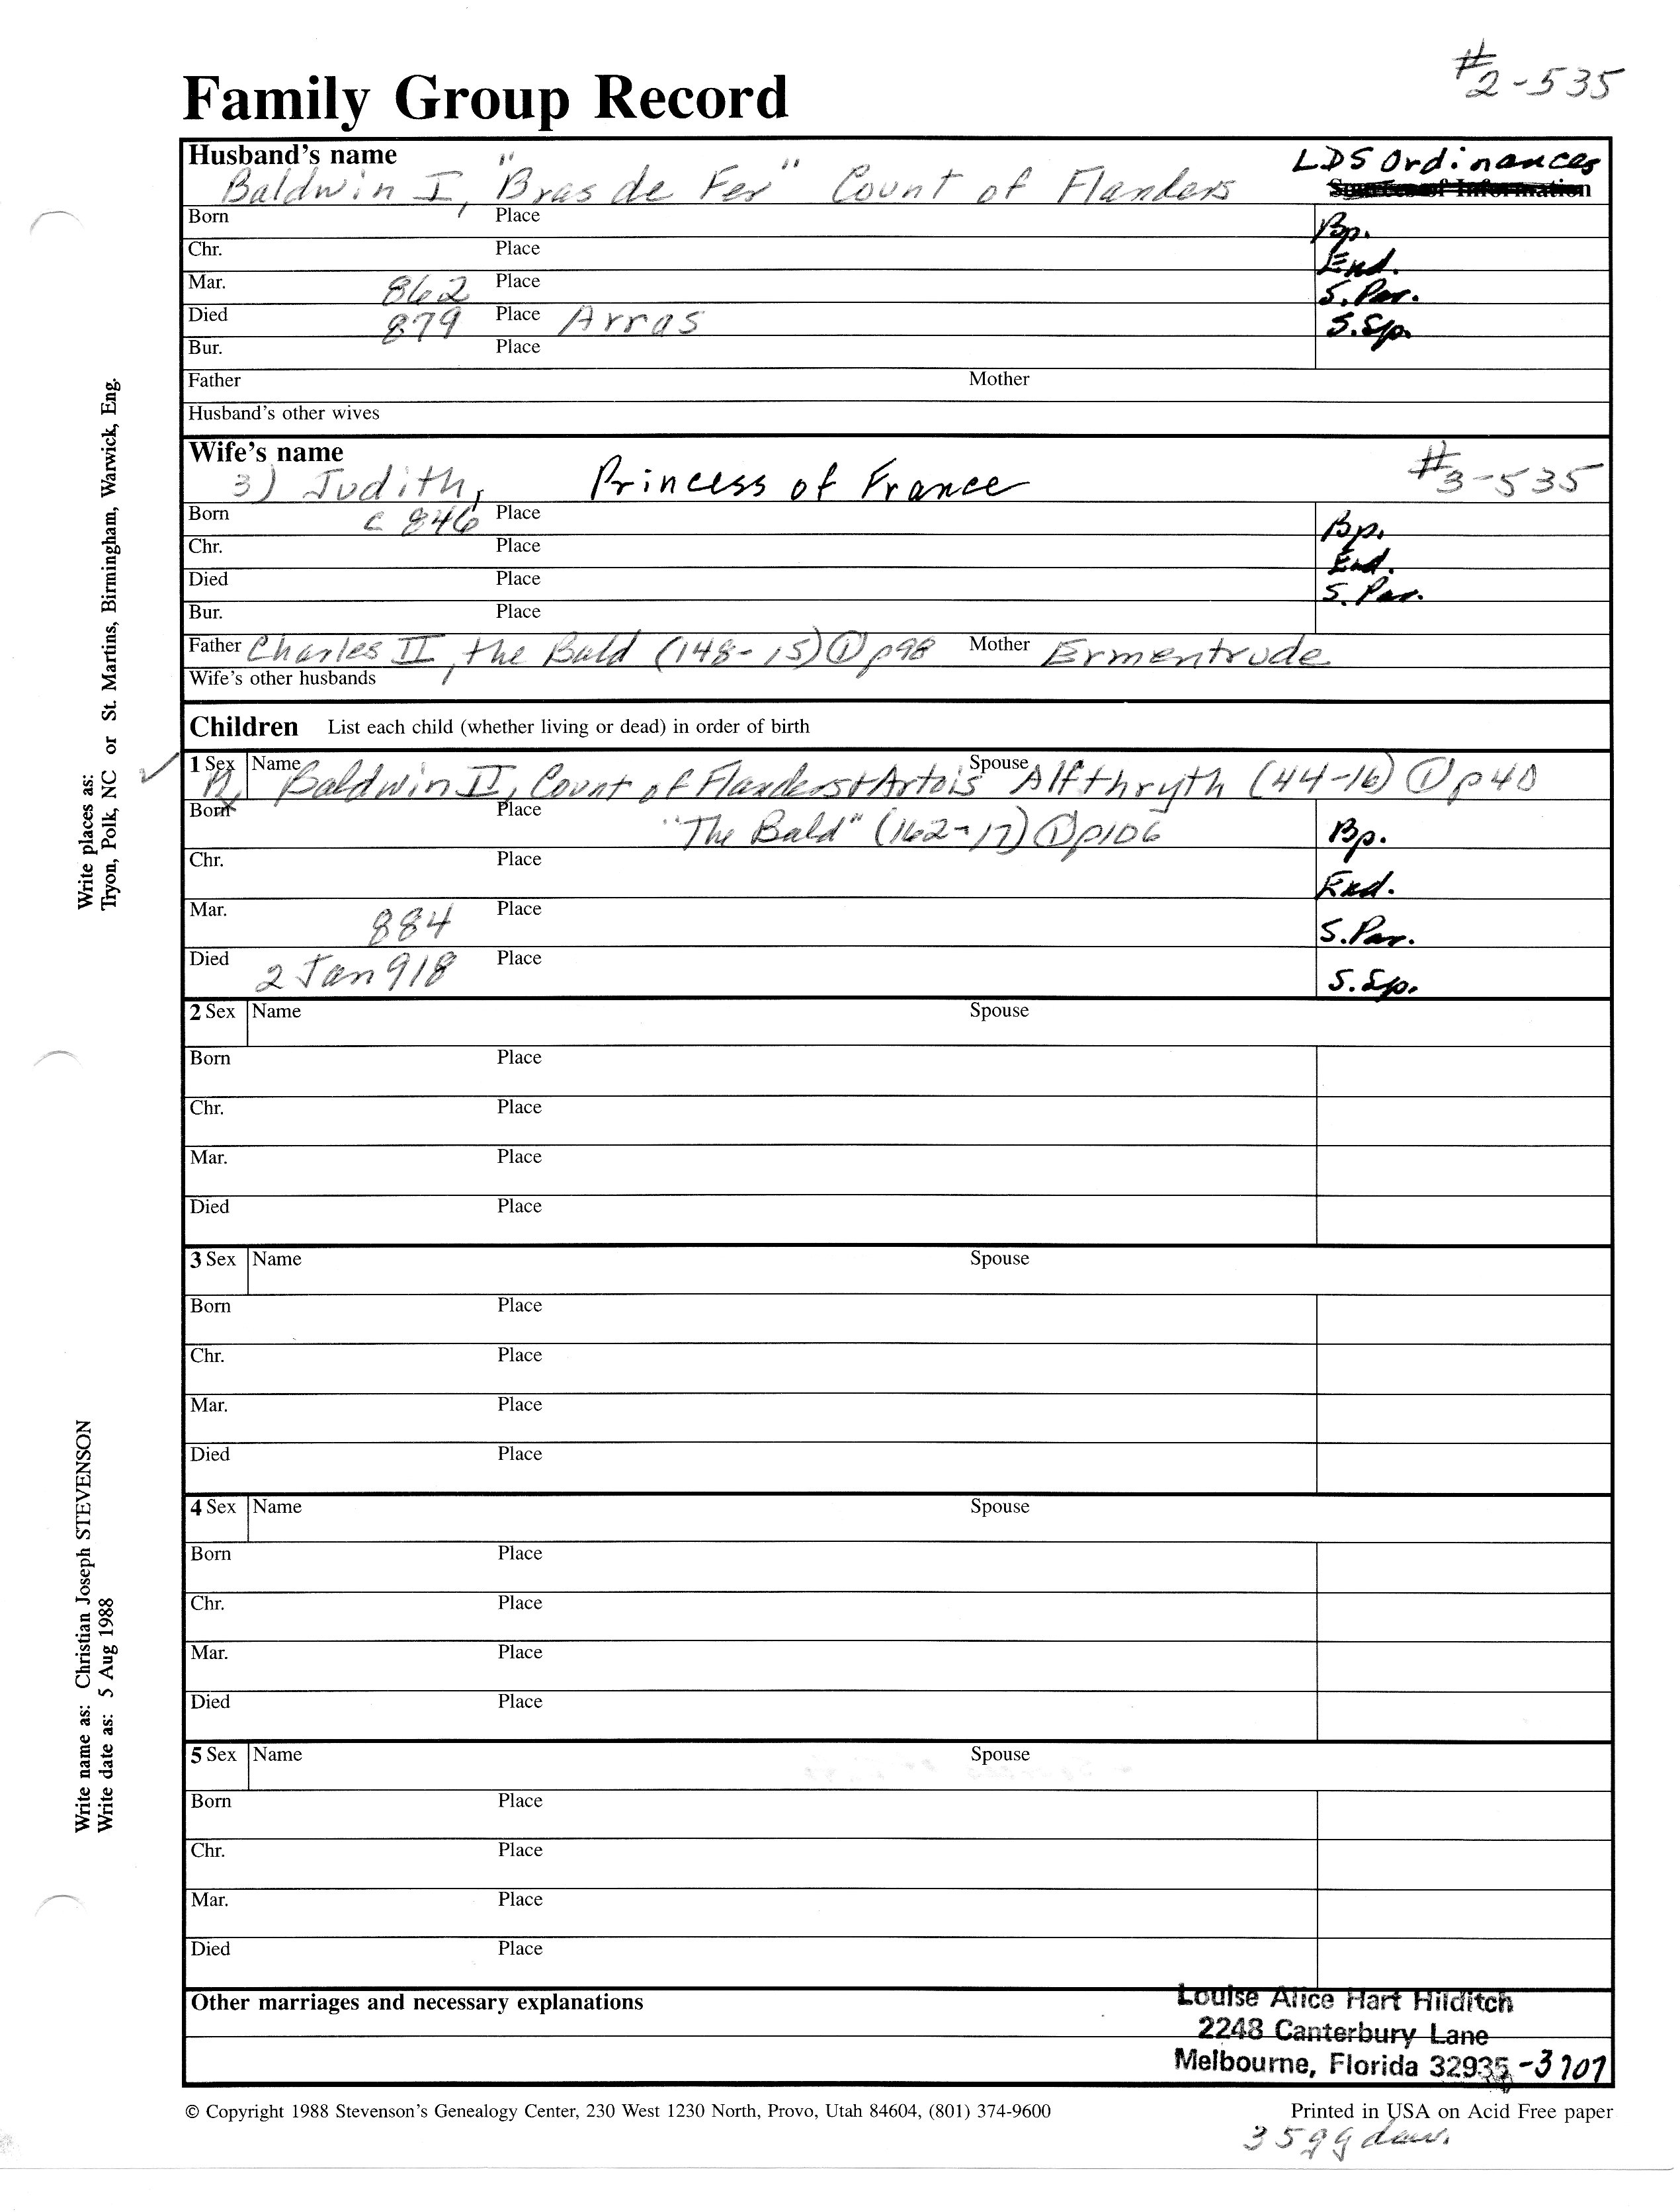 #2-535
Family Group Record
Husband's name
LDS Ordinances
Baldwin I, "Bras de Fer" Count of Flanders
Sources of Information
Born Place Bp.
Chr. Place End.
Mar. 862 Place S. Par.
Died 879 Place Arras S. Sp.
Bur. Place
Father Mother
Husband's other wives
Wife's name #3-535
3) Judith, Princess of France
Born c 846 Place Bp.
Chr. Place End.
Died Place S. Par.
Bur. Place
Father Charles II, the Bald (148-15) ① p98 Mother Ermentrude
Wife's other husbands
Children List each child (whether living or dead) in order of birth
1 Sex M. Name Baldwin II, Count of Flanders + Artois Spouse Alfthryth (44-16) ① p40
Born Place "The Bald" (162-17) ① p106 Bp.
Chr. Place End.
Mar. 884 Place S. Par.
Died 2 Jan 918 Place S. Sp.
2 Sex Name Spouse
Born Place
Chr. Place
Mar. Place
Died Place
3 Sex Name Spouse
Born Place
Chr. Place
Mar. Place
Died Place
4 Sex Name Spouse
Born Place
Chr. Place
Mar. Place
Died Place
5 Sex Name Spouse
Born Place
Chr. Place
Mar. Place
Died Place
Other marriages and necessary explanations
Louise Alice Hart Hilditch
2248 Canterbury Lane
Melbourne, Florida 32935-3707
© Copyright 1988 Stevenson's Genealogy Center, 230 West 1230 North, Provo, Utah 84604, (801) 374-9600 Printed in USA on Acid Free paper
35 gg
Write places as:
Tryon, Polk, NC or St. Martins, Birmingham, Warwick, Eng.
Write name as: Christian Joseph STEVENSON
Write date as: 5 Aug 1988